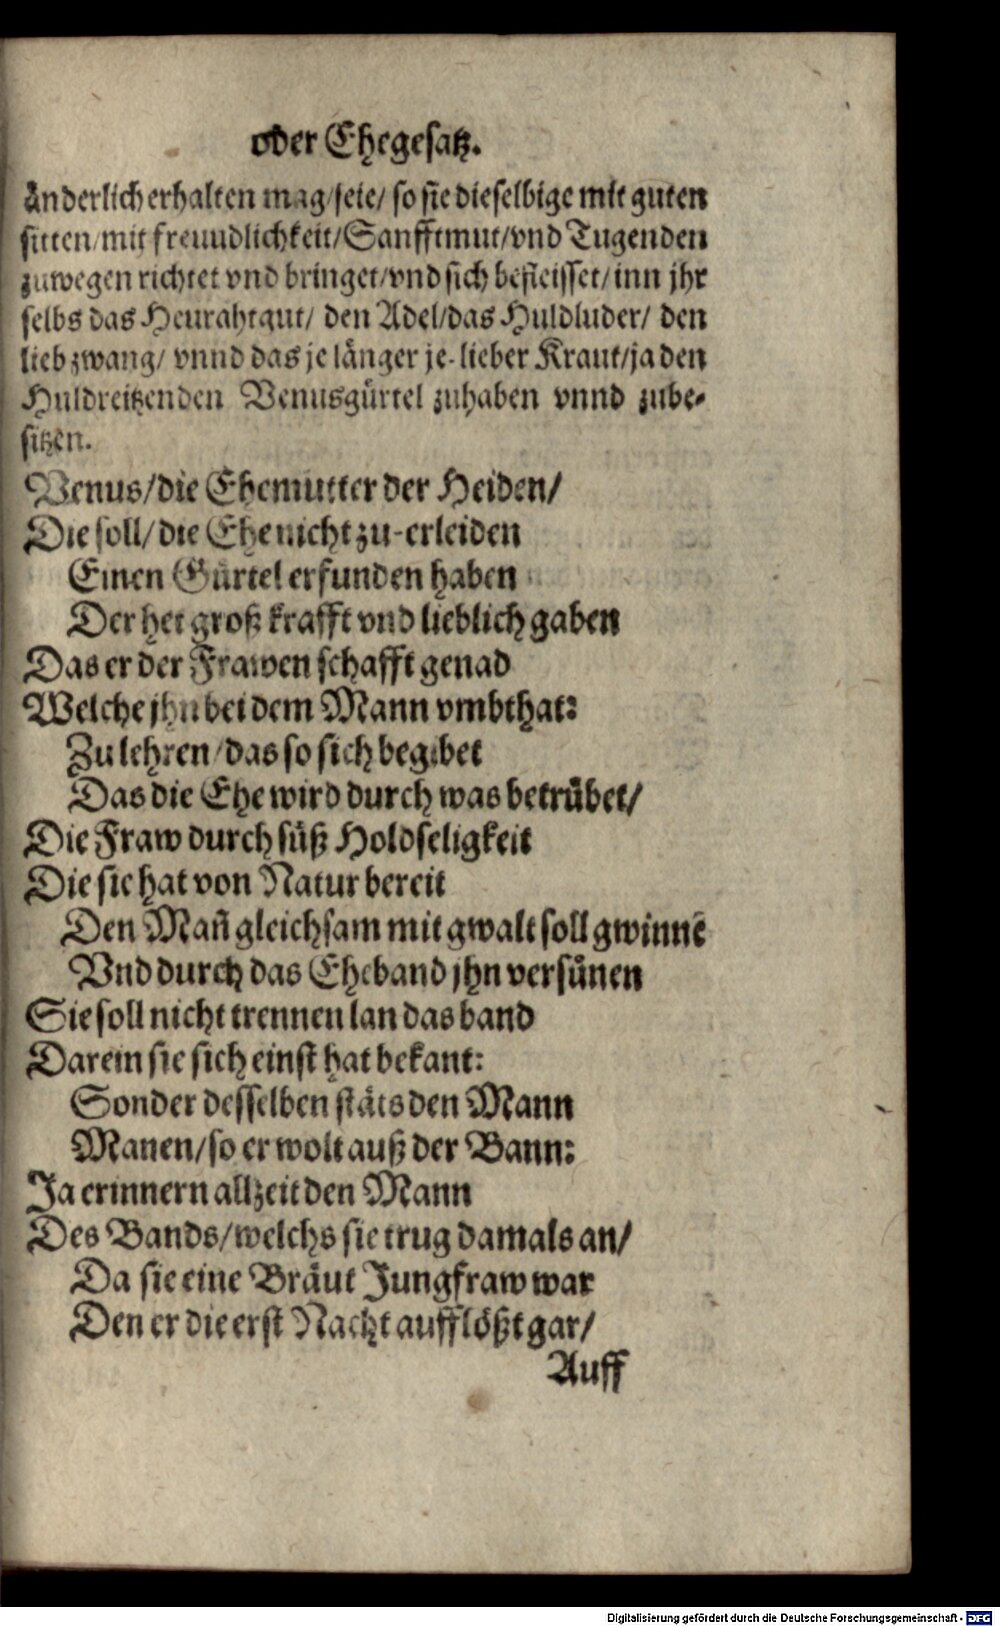 oder Ehegesatz.
änderlich erhalten mag/seie/ so sie dieselbige mit guten
sitten/mit freundlichkeit/Sanfftmut/vnd Tugenden
zuwegen richtet vnd bringet/vnd sich befleisset/inn jhr
selbs das Heurahtgut/ den Adel/das Huldluder/ den
liebzwang/ vnnd das je länger je-lieber Kraut/ja den
Huldreitzenden Venusgürtel zuhaben vnnd zube-
sitzen.
Venus/die Ehemutter der Heiden/
Die soll/die Ehe nicht zu-erleiden
Einen Gürtel erfunden haben
Der het groß krafft vnd lieblich gaben
Das er der Frawen schafft genad
Welche jhn bei dem Mann vmbthat:
Zu lehren/das so sich begibet
Das die Ehe wird durch was betrübet/
Die Fraw durch süß Holdseligkeit
Die sie hat von Natur bereit
Den Mañ gleichsam mit gwalt soll gwinnē
Vnd durch das Eheband jhn versünen
Sie soll nicht trennen lan das band
Darein sie sich einst hat bekant:
Sonder desselben stäts den Mann
Manen/so er wolt auß der Bann:
Ja erinnern allzeit den Mann
Des Bands/welchs sie trug damals an/
Da sie eine Bräut Jungfraw war
Den er die erst Nacht aufflößt gar/
Auff
Digitalisierung gefördert durch die Deutsche Forschungsgemeinschaft - DFG